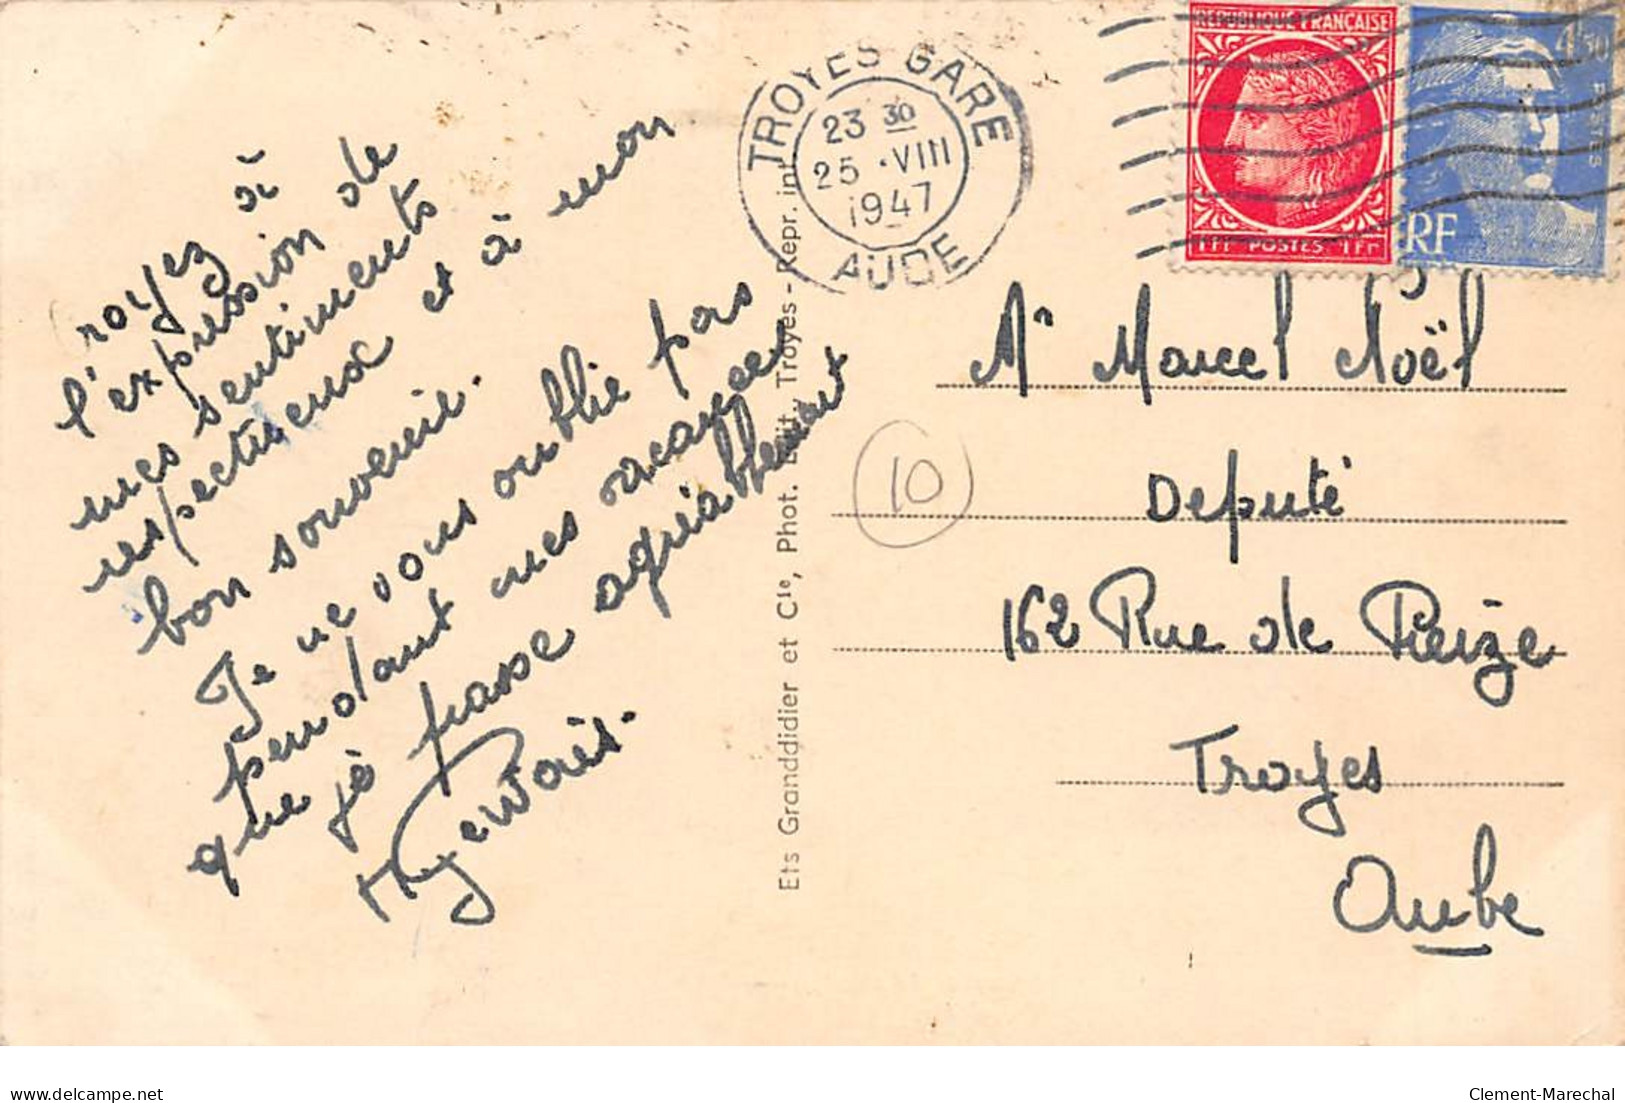 royez à
l'expression de
mes sentiments
respectueux et à mon
bon souvenir.
Je ne vous oublie pas
pendant mes vacances
que je passe agréablement
TROYES GARE
23 30
25 · VIII
1947
AUBE
REPUBLIQUE FRANCAISE
1Fr POSTES 1Fr
4F50
POSTES
RF
Ets Granddidier et Cie, Phot. Edit., Troyes - Repr. int.
10
Mr Marcel Noël
Deputé
162 Rue de Preize
Troyes
Aube
www.delcampe.net
Clement-Marechal